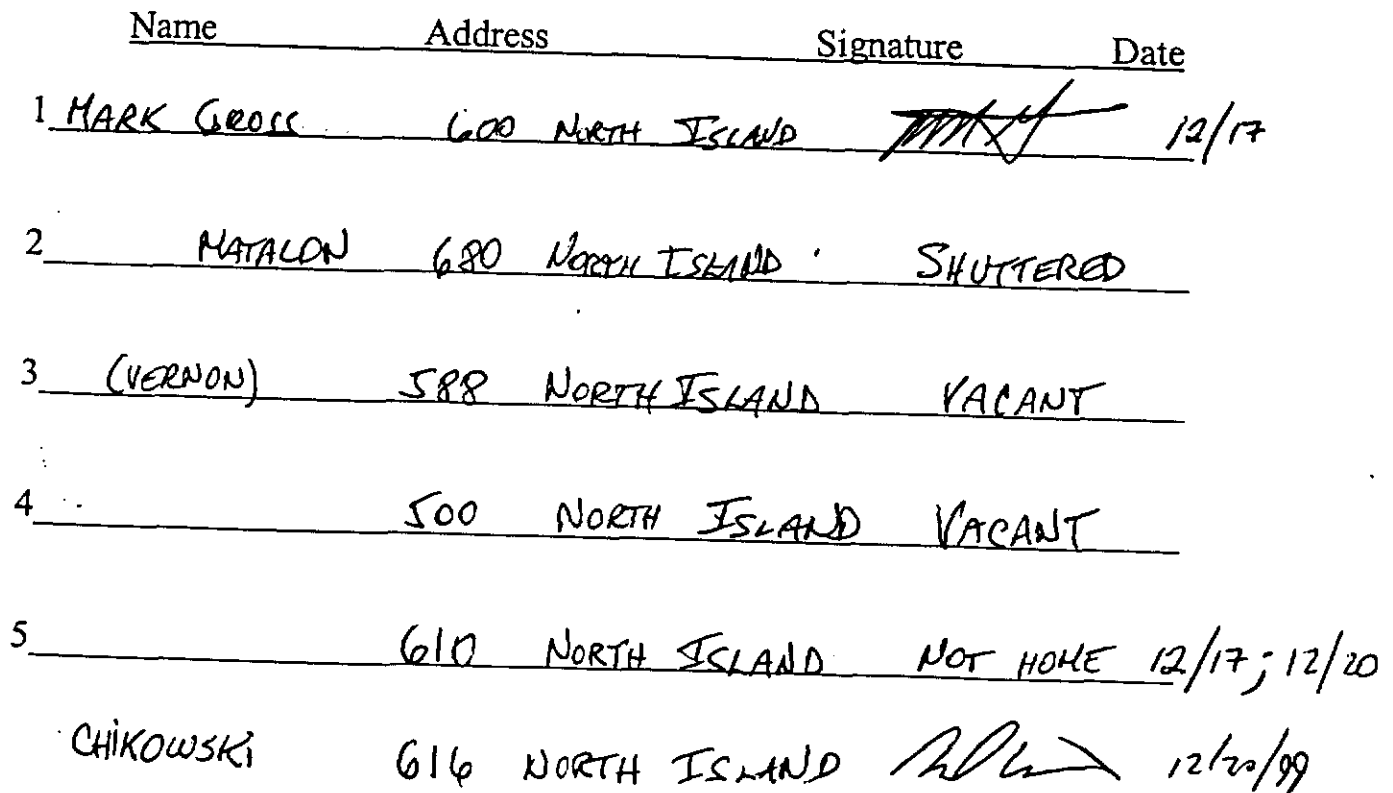 Name Address Signature Date
1 MARK GROSS 600 NORTH ISLAND 12/17
2 MATALON 680 NORTH ISLAND SHUTTERED
3 (VERNON) 588 NORTH ISLAND VACANT
4 500 NORTH ISLAND VACANT
5 610 NORTH ISLAND NOT HOME 12/17; 12/20
CHIKOWSKI 616 NORTH ISLAND 12/20/99